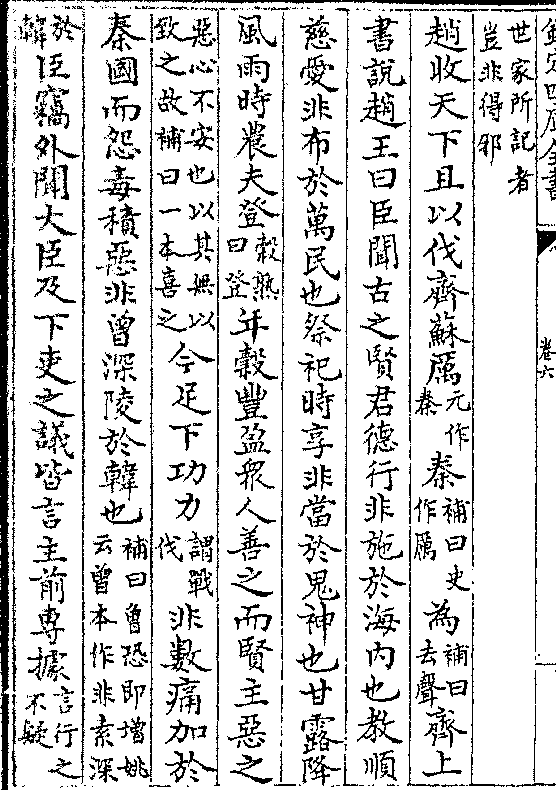 欽定四庫全書
卷六
世家所記者
豈非得邪
趙收天下且以伐齊蘇厲元作秦秦補曰史作厲為補曰去聲齊上
書說趙王曰臣聞古之賢君德行非施於海内也教順
慈愛非布於萬民也祭祀時享非當於鬼神也甘露降
風雨時農夫登穀熟曰登年穀豐盈衆人善之而賢主惡之
惡心不安也以其無以致之故補曰一本喜之今足下功力謂戰伐非數痛加於
秦國而怨毒積惡非曾深陵於韓也補曰曾恐即增姚云曾本作非素深
於韓臣竊外聞大臣及下吏之議皆言主前專據言行之不疑